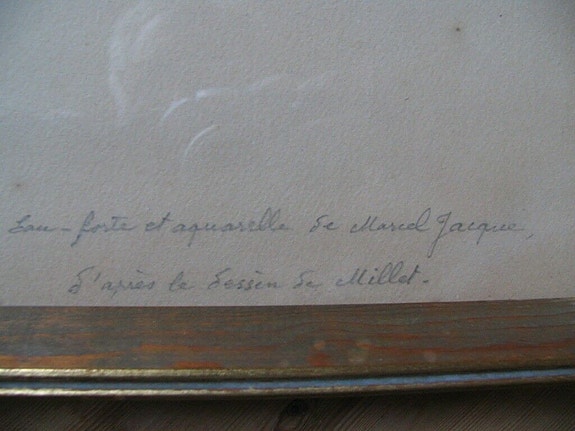 Eau-forte et aquarelle de Marcel Jacque,
d'après le dessin de Millet.